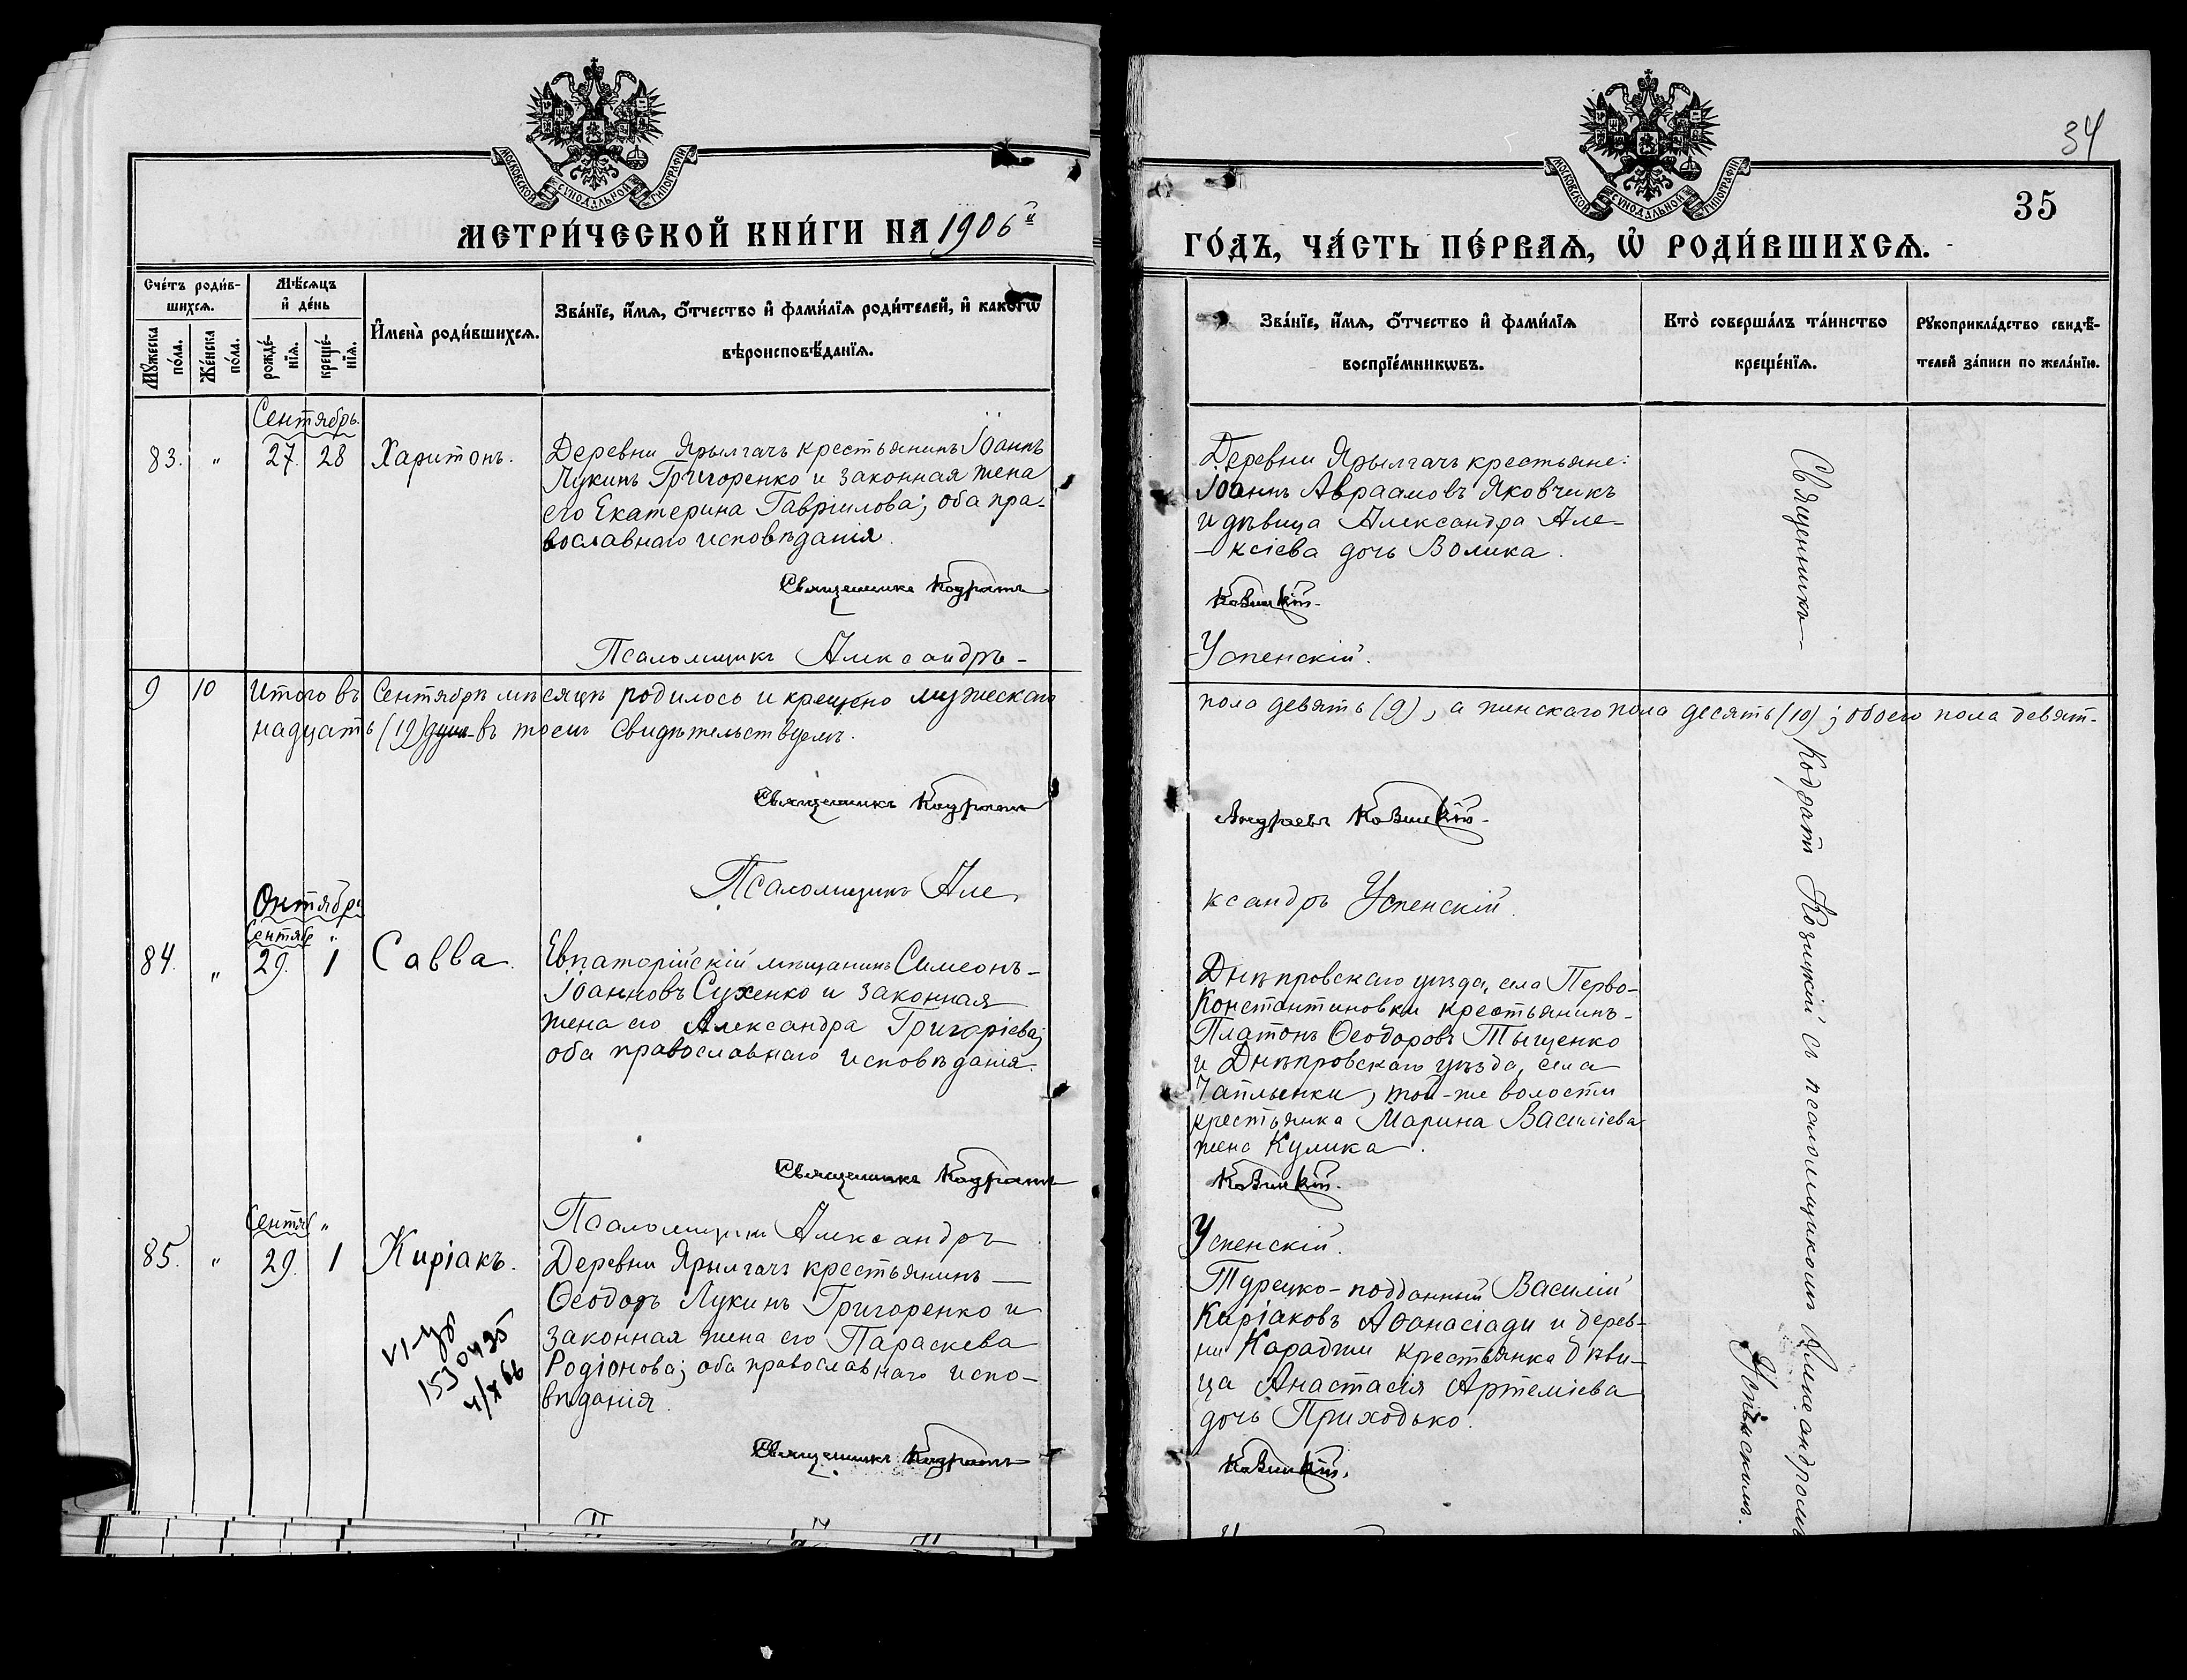 МОСКОВСКОЙ СѴНОДАЛЬНОЙ ТИПОГРАФІИ
МЕТРИ́ЧЕСКОЙ КНИ́ГИ НА 1906й
Сче́тъ роди́в-
шихся.
Му́жеска
по́ла.
Же́нска
по́ла.
Мѣ́сяцъ
и҆ де́нь
рожде́-
нїя.
креще́-
нїя.
И҆мена̀ роди́вшихся.
Зва́нїе, и҆́мя, ѻ҆́тчество и҆ фами́лїя роди́телей, и҆ како́гѡ
вѣроисповѣ́данїя.
Сентябрь.
83. " 27. 28 Харитонъ.
Деревни Ярылгачъ крестьянинъ Іоаннъ
Лукинъ Григоренко и законная жена
его Екатерина Гавріилова; оба пра-
вославнаго исповѣданія.
Священникъ Кодратъ
Псаломщикъ Александръ-
9 10 Итого въ Сентябрѣ мѣсяцѣ родилось и крещено мужескаго
надцать (19) душ въ чемъ свидѣтельствуемъ.
Священникъ Кодратъ
Псаломщикъ Але
Октябрь
Сентяб ".
84. " 29. 1 Савва.
Евпаторійскій мѣщанинъ Симеонъ-
Іоанновъ Сухенко и законная
жена его Александра Григоріева;
оба православнаго исповѣданія.
Священникъ Кодратъ
Псаломщикъ Александръ
Сентяб "
85. " 29. 1 Киріакъ.
Деревни Ярылгачъ крестьянинъ —
Ѳеодоръ Лукинъ Григоренко и
законная жена его Параскева
Родіонова; оба православнаго испо-
вѣданія.
153 0495
4/X 66
Священникъ Кодратъ
34
35
МОСКОВСКОЙ СѴНОДАЛЬНОЙ ТИПОГРАФІИ
ГО́ДЪ, ЧА́СТЬ ПЕ́РВАЯ, Ѽ РОДИ́ВШИХСЯ.
Зва́нїе, и҆́мя, ѻ҆́тчество и҆ фами́лїя
воспрїе́мникѡвъ.
Кто̀ соверша́лъ та́инство
креще́нїя.
Рꙋкоприкла́дство свидѣ́-
телей за́писи по жела́нїю.
Деревни Ярылгачъ крестьяне:
Іоаннъ Авраамовъ Яковчикъ
и дѣвица Александра Але-
-ксіева дочь Волика.
Козицкій.
Успенскій.
пола девять (9), а женскаго пола десять (10); обоего пола девят-
Андреевъ Козицкій.
ксандръ Успенскій.
Днѣпровскаго уѣзда, села Перво-
Константиновки крестьянинъ-
Платонъ Ѳеодоровъ Тыщенко
и Днѣпровскаго уѣзда, села
Чаплынки, той-же волости
крестьянка Марина Василіева
жена Кулика.
Козицкій.
Успенскій.
Турецко-подданный Василій
Киріаковъ Аѳанасіади и дерев-
ни Караджи крестьянка дѣви-
ца Анастасія Артеміева
дочь Приходько.
Козицкій.
Священникъ Кодратъ Козицкій съ псаломщикомъ Александромъ
Успенскимъ.